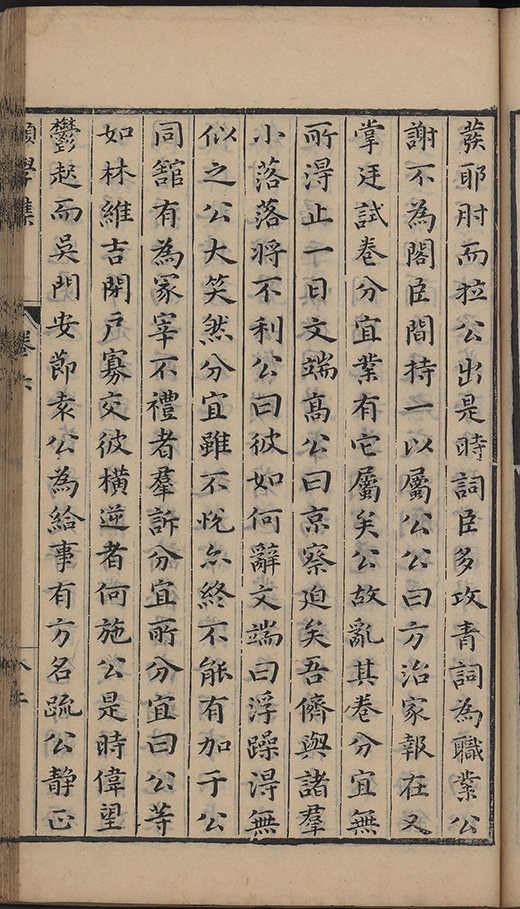 發耶肘而拉公出是時詞臣多攻青詞為職業公
謝不為閣臣間持一以屬公公曰方治家報在又
掌廷試卷分宜業有它屬矣公故亂其卷分宜無
所得止一日文端高公曰京察迫矣吾儕與諸羣
小落落將不利公曰彼如何辭文端曰浮躁得無
似之公大笑然分宜雖不悅亦終不能有加于公
同舘有為冢宰不禮者羣訴分宜所分宜曰公等
如林維吉閉戶寡交彼橫逆者何施公是時偉望
鬱起而吳門安節袁公為給事有方名疏公靜正
學集
卷六